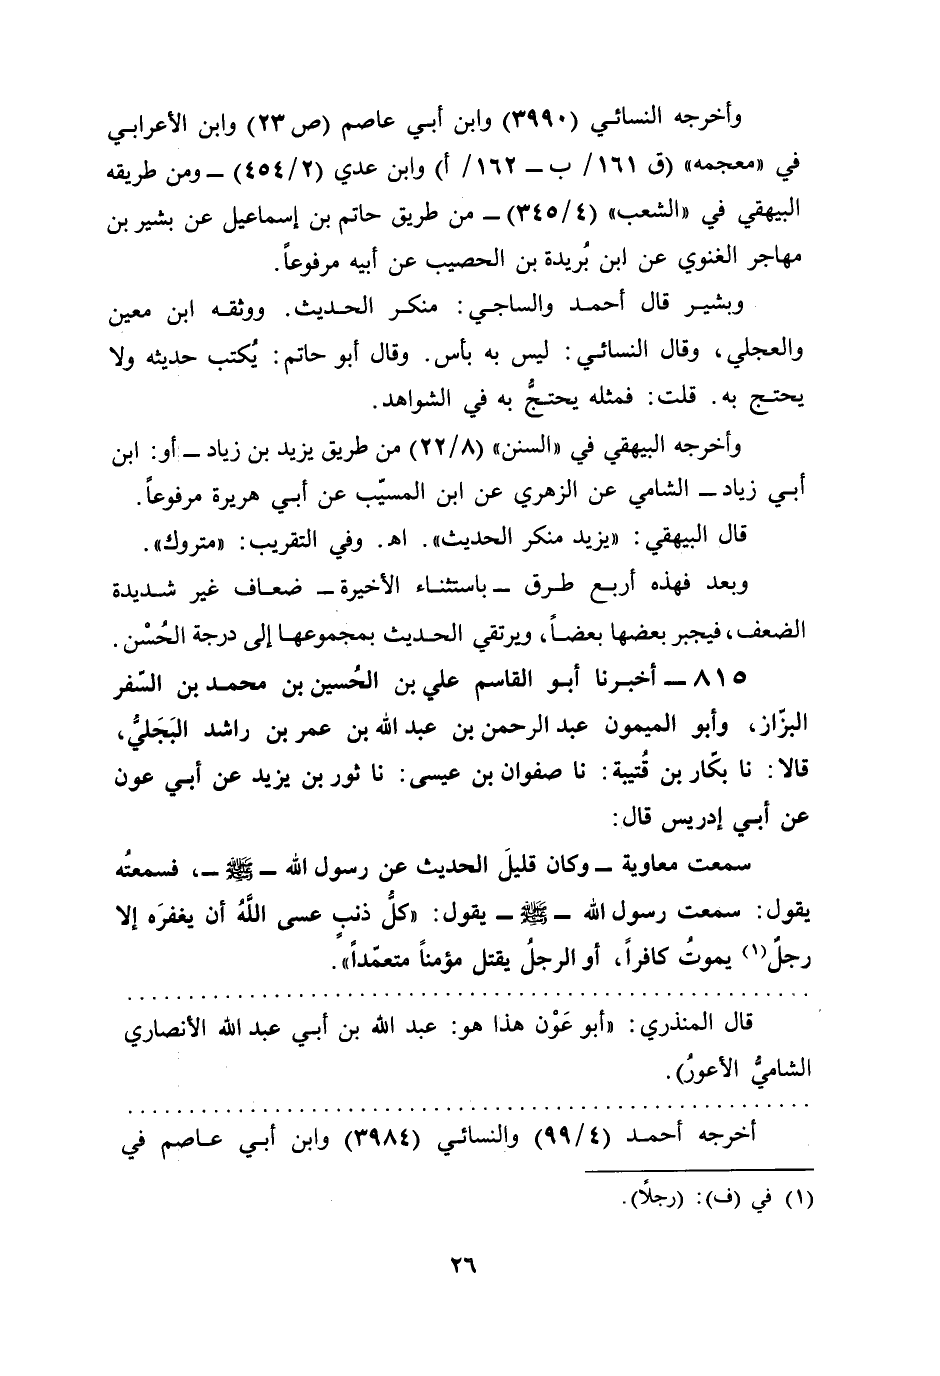 وأخرجه النسائي (٣٩٩٠) وابن أبي عاصم (ص ٢٣) وابن الأعرابي
في «معجمه» (ق ١٦١/ ب ــ ١٦٢/ أ) وابن عدي (٢/ ٤٥٤) ــ ومن طريقه
البيهقي في «الشعب» (٤/ ٣٤٥) ــ من طريق حاتم بن إسماعيل عن بشير بن
مهاجر الغنوي عن ابن بُريدة بن الحصيب عن أبيه مرفوعاً.
وبشير قال أحمد والساجي: منكر الحديث. ووثقه ابن معين
والعجلي، وقال النسائي: ليس به بأس. وقال أبو حاتم: يُكتب حديثه ولا
يحتج به. قلت: فمثله يحتجُّ به في الشواهد.
وأخرجه البيهقي في «السنن» (٨/ ٢٢) من طريق يزيد بن زياد ــ أو: ابن
أبي زياد ــ الشامي عن الزهري عن ابن المسيّب عن أبي هريرة مرفوعاً.
قال البيهقي: «يزيد منكر الحديث». اهـ. وفي التقريب: «متروك».
وبعد فهذه أربع طرق ــ باستثناء الأخيرة ــ ضعاف غير شديدة
الضعف، فيجبر بعضها بعضاً، ويرتقي الحديث بمجموعها إلى درجة الحُسْن.
٨١٥ ــ أخبرنا أبو القاسم علي بن الحُسين بن محمد بن السّفر
البزّاز، وأبو الميمون عبد الرحمن بن عبد الله بن عمر بن راشد البَجَليُّ،
قالا: نا بكّار بن قُتيبة: نا صفوان بن عيسى: نا ثور بن يزيد عن أبي عون
عن أبي إدريس قال:
سمعت معاوية ــ وكان قليلَ الحديث عن رسول الله ــ ﷺ ــ، فسمعتُه
يقول: سمعت رسول الله ــ ﷺ ــ يقول: «كلُّ ذنبٍ عسى اللَّهُ أن يغفرَه إلا
رجلٌ(١) يموتُ كافراً، أو الرجلُ يقتل مؤمناً متعمّداً».
قال المنذري: «أبو عَوْن هذا هو: عبد الله بن أبي عبد الله الأنصاري
الشاميُّ الأعورُ).
أخرجه أحمد (٤/ ٩٩) والنسائي (٣٩٨٤) وابن أبي عاصم في
(١) في (ف): (رجلًا).
٢٦